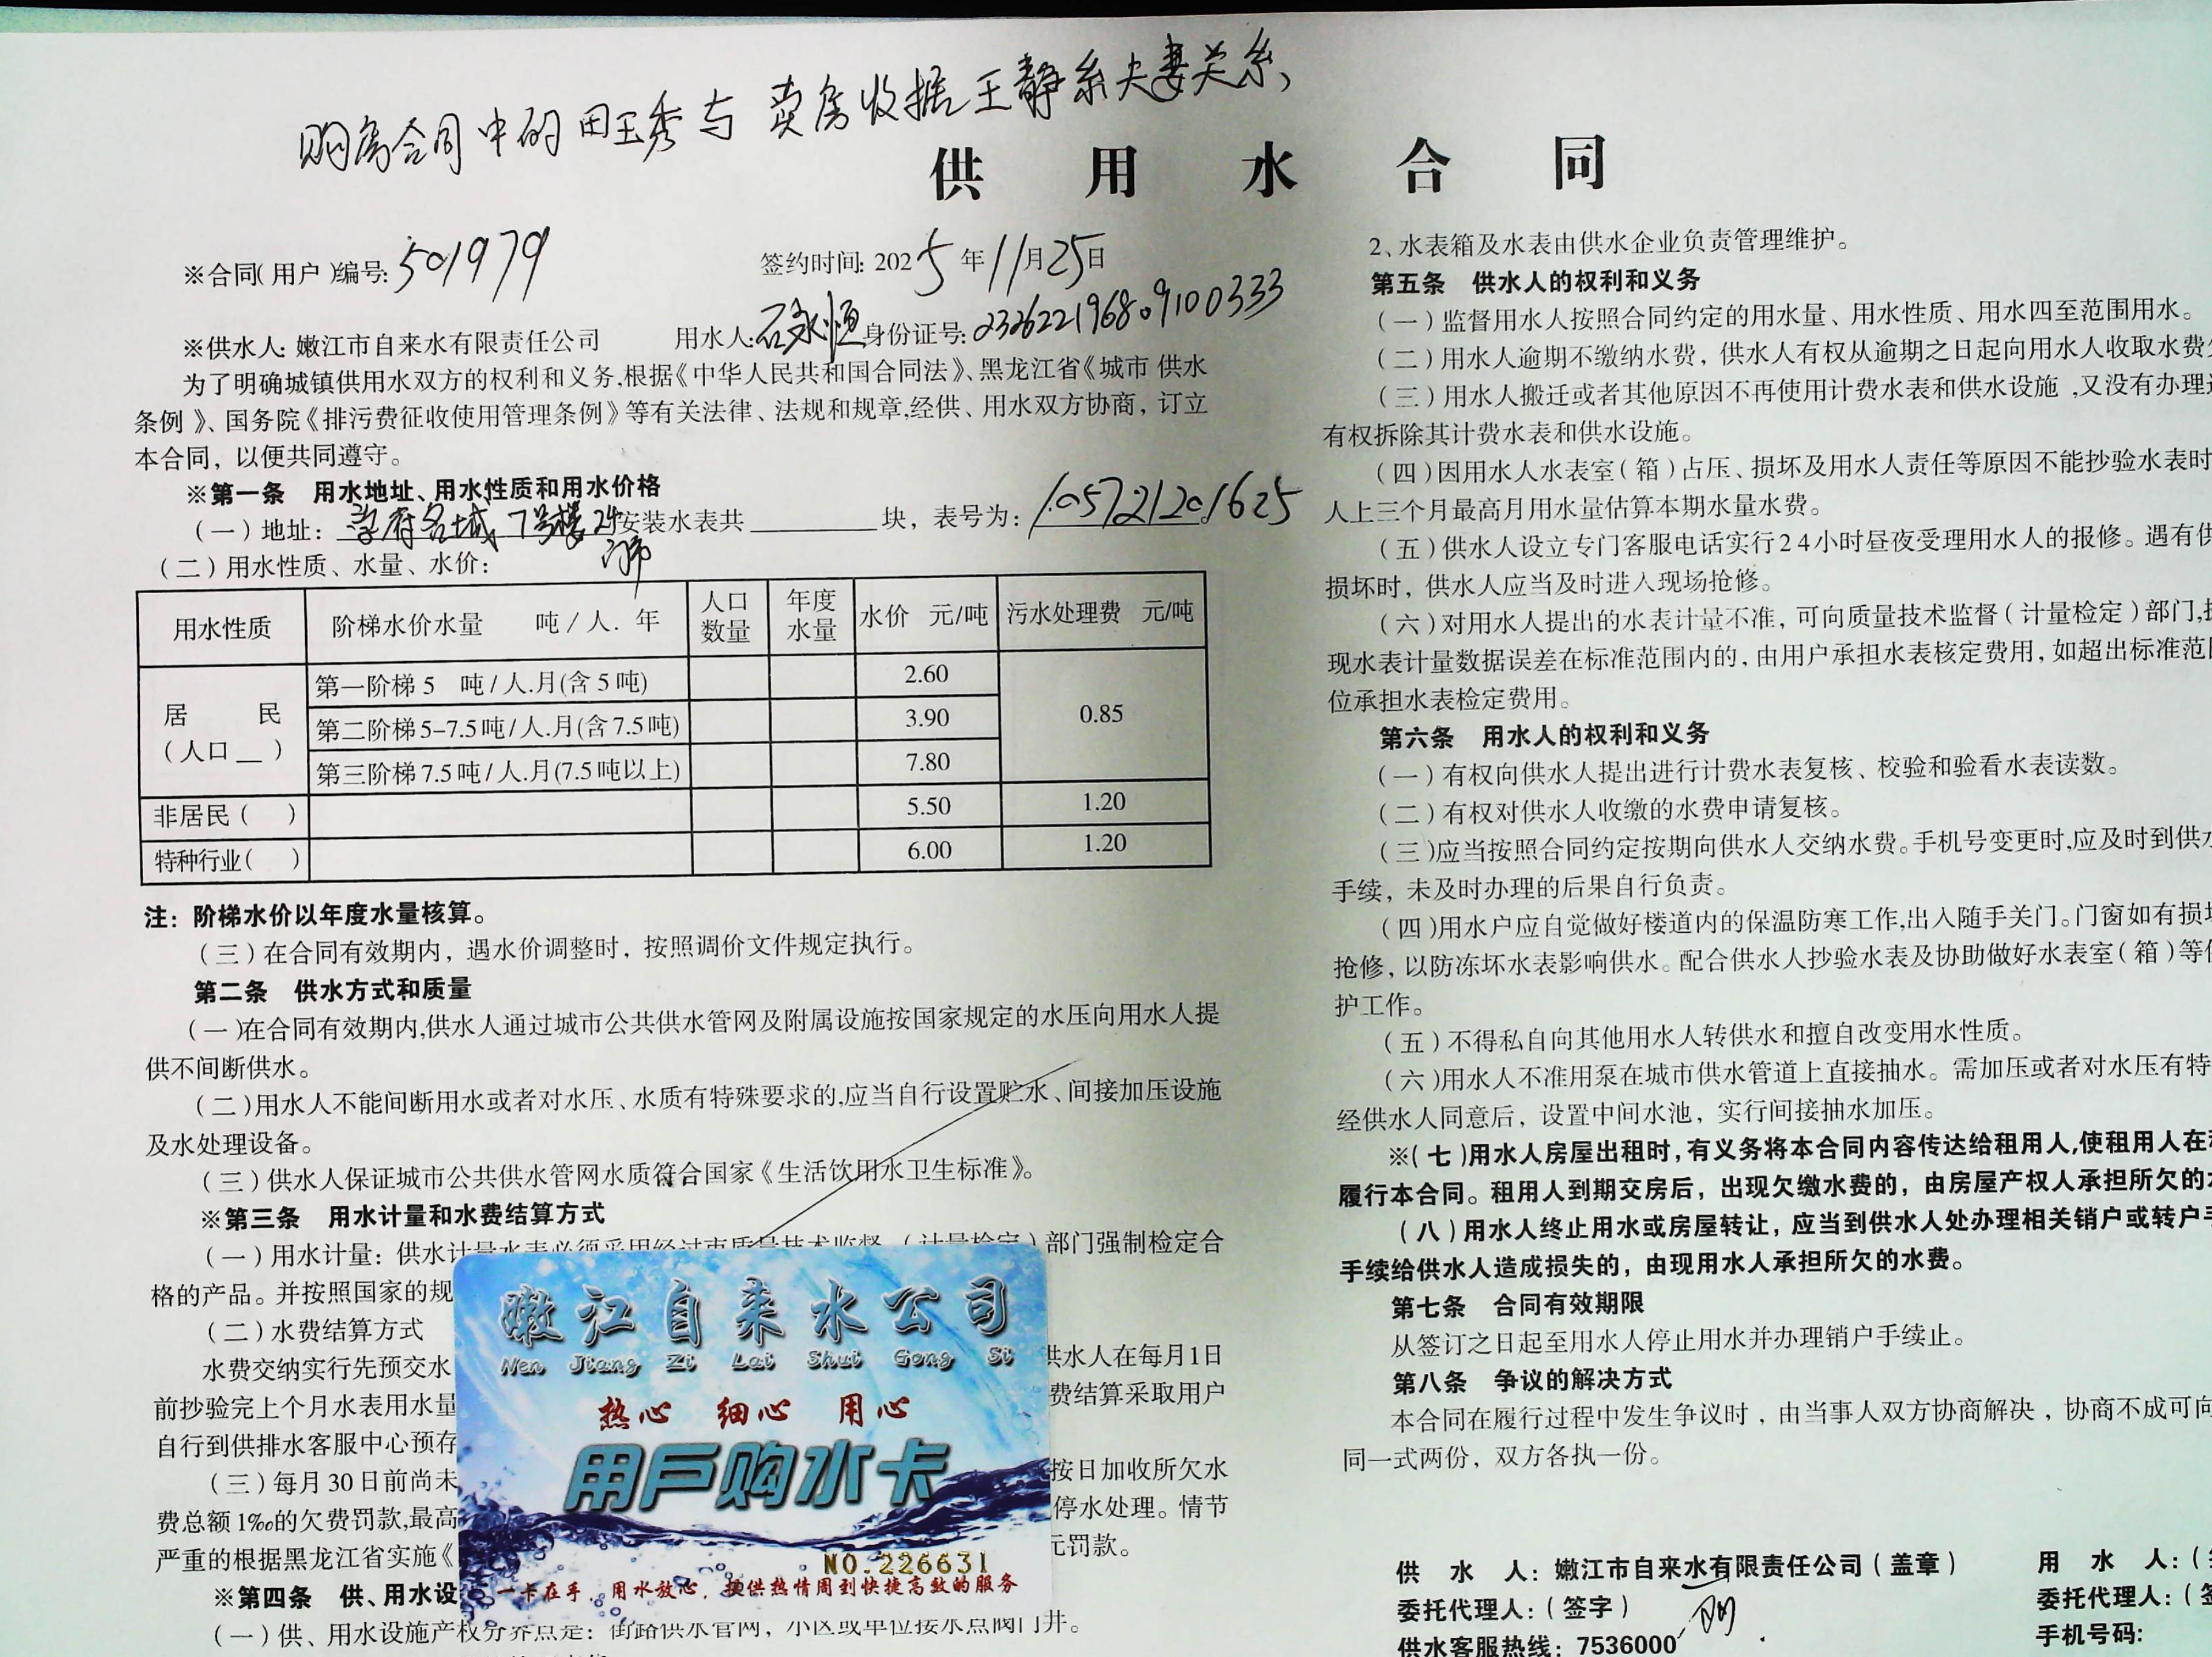 购房合同中的田玉秀与卖房收据王静系夫妻关系,
供用水合同
※合同(用户)编号: 501979 签约时间: 2025年11月25日
※供水人: 嫩江市自来水有限责任公司 用水人: 石永恒 身份证号: 232622196809100333
为了明确城镇供用水双方的权利和义务,根据《中华人民共和国合同法》、黑龙江省《城市供水
条例》、国务院《排污费征收使用管理条例》等有关法律、法规和规章,经供、用水双方协商，订立
本合同，以便共同遵守。
※第一条 用水地址、用水性质和用水价格
(一)地址: 学府名城 7号楼 24 安装水表共____块，表号为: 1.05721201625
门市
(二)用水性质、水量、水价:
用水性质 阶梯水价水量 吨/人.年 人口数量 年度水量 水价 元/吨 污水处理费 元/吨
居民(人口__) 第一阶梯5 吨/人.月(含5吨) 2.60 0.85
第二阶梯5-7.5吨/人.月(含7.5吨) 3.90
第三阶梯7.5吨/人.月(7.5吨以上) 7.80
非居民( ) 5.50 1.20
特种行业( ) 6.00 1.20
注：阶梯水价以年度水量核算。
(三)在合同有效期内，遇水价调整时，按照调价文件规定执行。
第二条 供水方式和质量
(一)在合同有效期内,供水人通过城市公共供水管网及附属设施按国家规定的水压向用水人提
供不间断供水。
(二)用水人不能间断用水或者对水压、水质有特殊要求的,应当自行设置贮水、间接加压设施
及水处理设备。
(三)供水人保证城市公共供水管网水质符合国家《生活饮用水卫生标准》。
※第三条 用水计量和水费结算方式
(一)用水计量：供水计量水表必须采用经过市质量技术监督（计量检定）部门强制检定合
格的产品。并按照国家的规
(二)水费结算方式
水费交纳实行先预交水 供水人在每月1日
前抄验完上个月水表用水量 费结算采取用户
自行到供排水客服中心预存
(三)每月30日前尚未 按日加收所欠水
费总额1‰的欠费罚款,最高 停水处理。情节
严重的根据黑龙江省实施《 元罚款。
※第四条 供、用水设
(一)供、用水设施产权分界点是：街路供水管网，小区或单位接水点阀门井。
嫩江自来水公司
Nen Jiang Zi Lai Shui Gong Si
热心 细心 用心
用户购水卡
NO.226631
一卡在手，用水放心，提供热情周到快捷高效的服务
2、水表箱及水表由供水企业负责管理维护。
第五条 供水人的权利和义务
(一)监督用水人按照合同约定的用水量、用水性质、用水四至范围用水。
(二)用水人逾期不缴纳水费，供水人有权从逾期之日起向用水人收取水费
(三)用水人搬迁或者其他原因不再使用计费水表和供水设施,又没有办理
有权拆除其计费水表和供水设施。
(四)因用水人水表室(箱)占压、损坏及用水人责任等原因不能抄验水表时
人上三个月最高月用水量估算本期水量水费。
(五)供水人设立专门客服电话实行24小时昼夜受理用水人的报修。遇有供
损坏时，供水人应当及时进入现场抢修。
(六)对用水人提出的水表计量不准，可向质量技术监督(计量检定)部门,
现水表计量数据误差在标准范围内的,由用户承担水表核定费用,如超出标准范
位承担水表检定费用。
第六条 用水人的权利和义务
(一)有权向供水人提出进行计费水表复核、校验和验看水表读数。
(二)有权对供水人收缴的水费申请复核。
(三)应当按照合同约定按期向供水人交纳水费。手机号变更时,应及时到供水
手续，未及时办理的后果自行负责。
(四)用水户应自觉做好楼道内的保温防寒工作,出入随手关门。门窗如有损
抢修,以防冻坏水表影响供水。配合供水人抄验水表及协助做好水表室(箱)等
护工作。
(五)不得私自向其他用水人转供水和擅自改变用水性质。
(六)用水人不准用泵在城市供水管道上直接抽水。需加压或者对水压有特
经供水人同意后，设置中间水池，实行间接抽水加压。
※(七)用水人房屋出租时,有义务将本合同内容传达给租用人,使租用人在
履行本合同。租用人到期交房后，出现欠缴水费的，由房屋产权人承担所欠的
(八)用水人终止用水或房屋转让，应当到供水人处办理相关销户或转户
手续给供水人造成损失的，由现用水人承担所欠的水费。
第七条 合同有效期限
从签订之日起至用水人停止用水并办理销户手续止。
第八条 争议的解决方式
本合同在履行过程中发生争议时，由当事人双方协商解决，协商不成可向
同一式两份，双方各执一份。
供水人: 嫩江市自来水有限责任公司(盖章) 用水人:(
委托代理人:(签字) 委托代理人:(
供水客服热线: 7536000 手机号码: